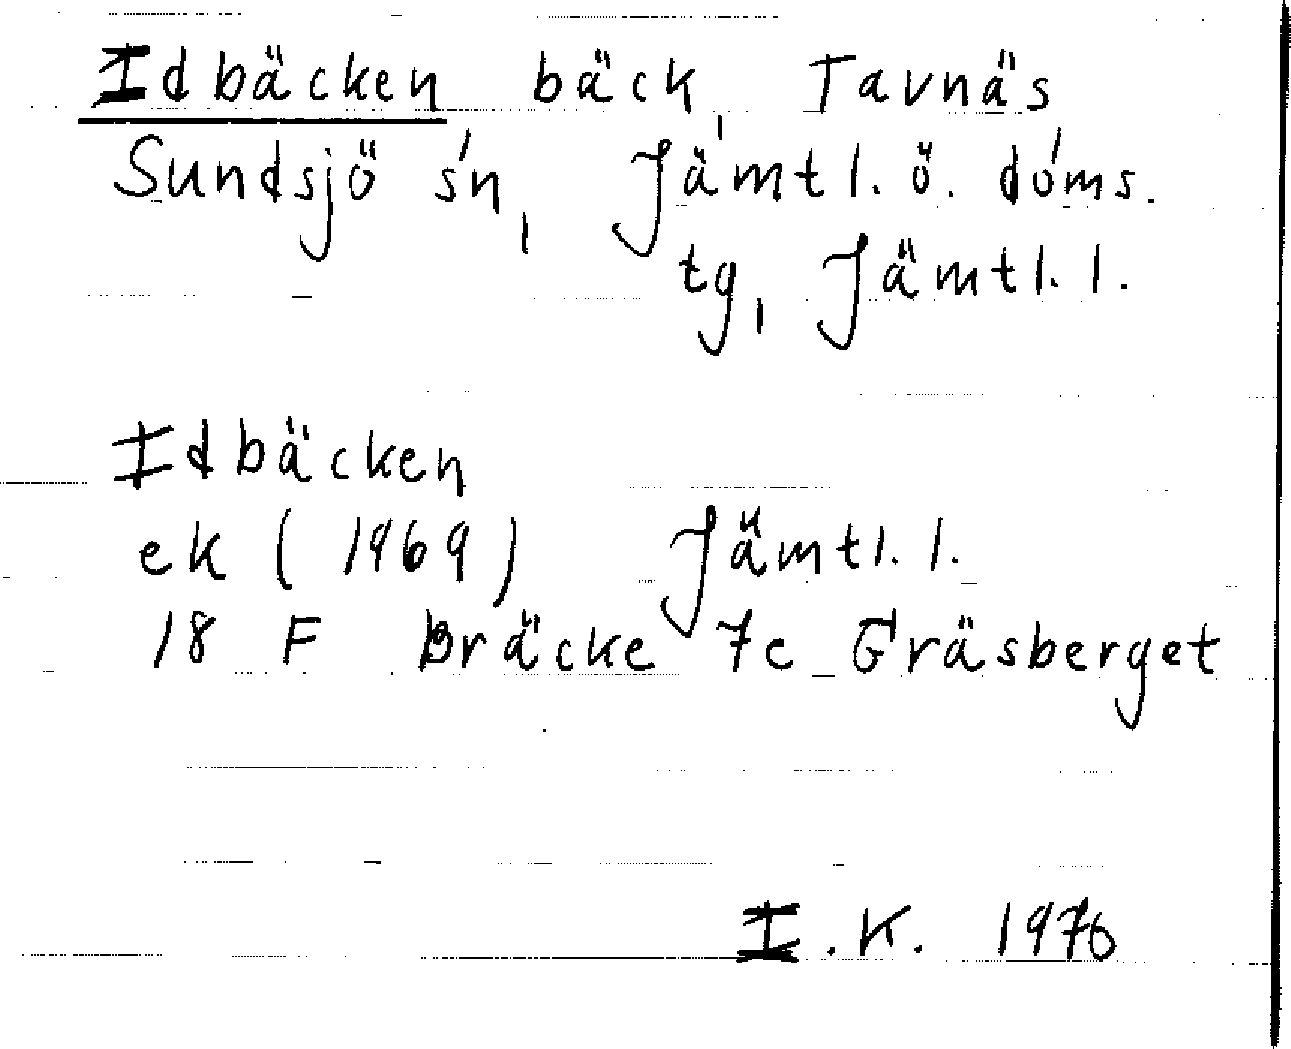 Idbäcken bäck, Tavnäs
Sundsjö sn, Jämtl. ö. doms.
tg, Jämtl. l.
Idbäcken
ek (1969) Jämtl. l.
18 F Bräcke 7c Gräsberget
I.K. 1976